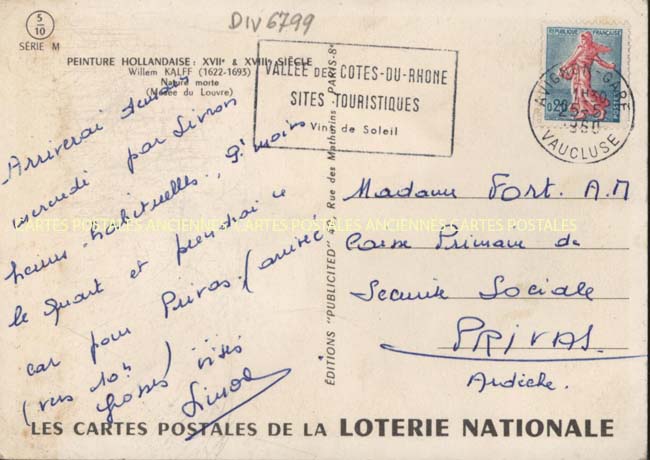 DIV6799
5
10
SÉRIE M
PEINTURE HOLLANDAISE : XVIIe & XVIIIe SIÈCLE
Willem KALFF (1622-1693)
Nature morte
(Musée du Louvre)
VALLÉE DES COTES-DU-RHONE
SITES TOURISTIQUES
Vins de Soleil
REPUBLIQUE FRANÇAISE
0,20
AVIGNON GARE
25-5
1960
VAUCLUSE
Arriverai
mercredi par Livron
heures habituelles, moins
le quart et prendrai le
car pour Privas (arrivée
(vers 10h)
Grosses bises
EDITIONS "PUBLICITED" Rue des Mathurins PARIS-8e
Madame Fort. A.M
Caisse Primaire de
Securité Sociale
PRIVAS.
Ardèche.
CARTES POSTALES ANCIENNES CARTES POSTALES ANCIENNES CARTES POSTALES
LES CARTES POSTALES DE LA LOTERIE NATIONALE